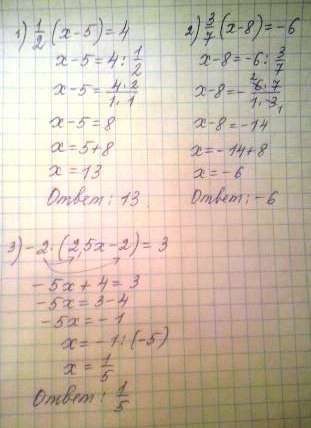 1) 1/2 (x-5)=4
x-5=4:1/2
x-5=4·2/1·1
x-5=8
x=5+8
x=13
Ответ: 13
2) 3/7 (x-8)=-6
x-8=-6:3/7
x-8=-6·7/1·3
x-8=-14
x=-14+8
x=-6
Ответ: -6
3) -2·(2,5x-2)=3
-5x+4=3
-5x=3-4
-5x=-1
x=-1:(-5)
x=1/5
Ответ: 1/5